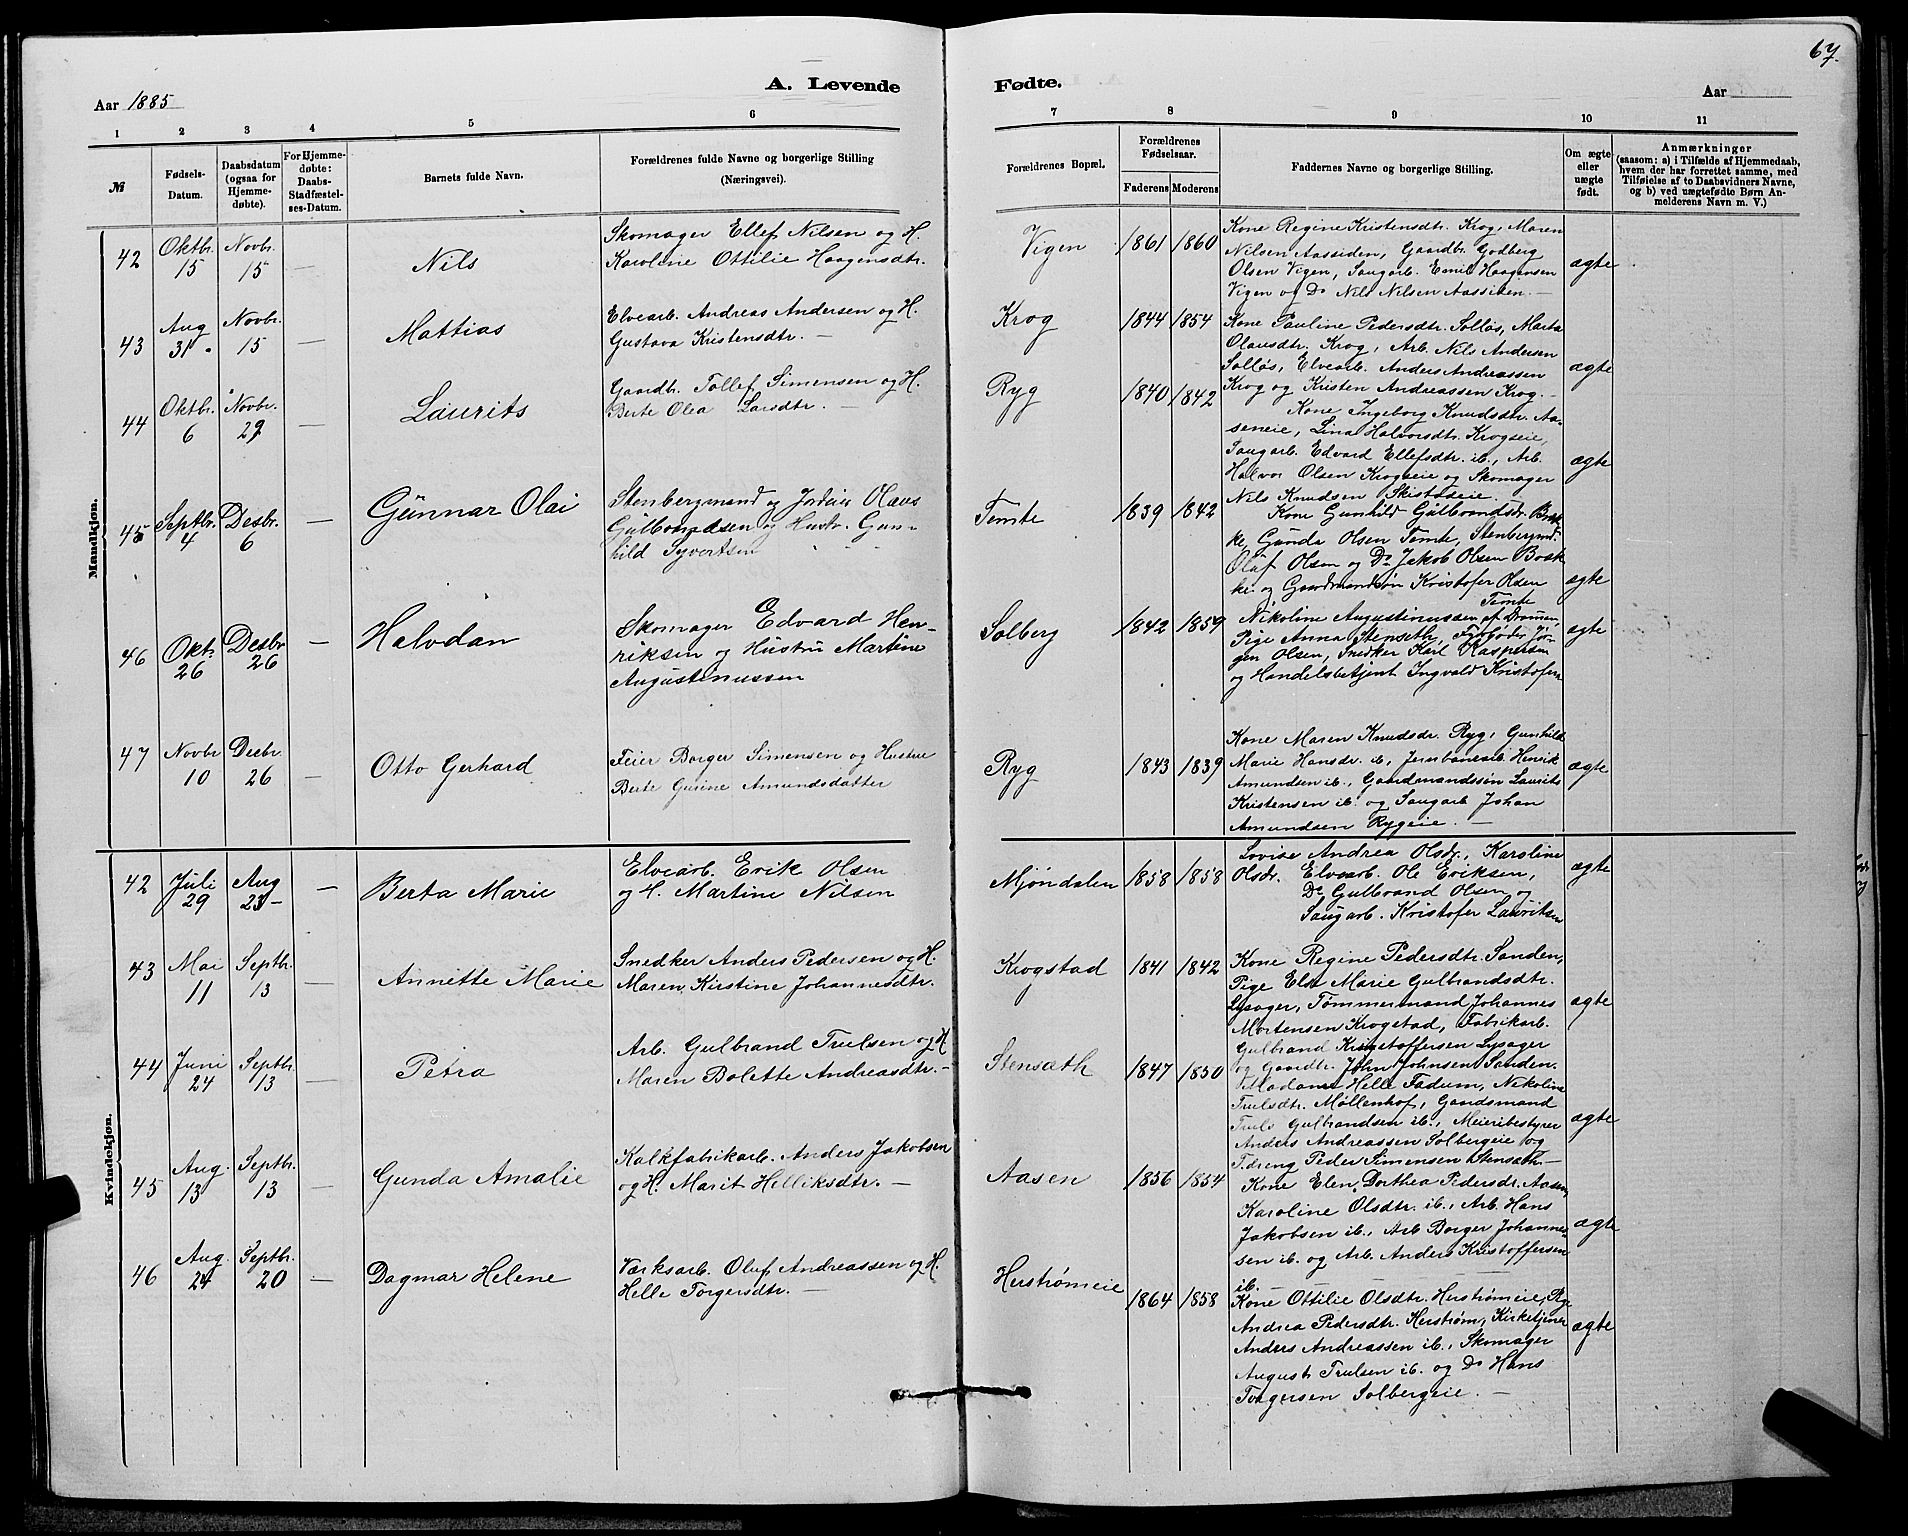 67.
A. Levende
Fødte.
Aar 1885
Aar
1 2 3 4 5 6 7 8 9 10 11
№
Fødsels-
Datum.
Daabsdatum
(ogsaa for
Hjemme-
døbte).
For Hjemme-
døbte:
Daabs-
Stadfæstel-
ses-Datum.
Barnets fulde Navn.
Forældrenes fulde Navne og borgerlige Stilling
(Næringsvei).
Forældrenes Bopæl.
Forældrenes
Fødselsaar.
Faderens Moderens
Faddernes Navne og borgerlige Stilling.
Om ægte
eller
uægte
født.
Anmærkninger
(saasom: a) i Tilfælde af Hjemmedaab,
hvem der har forrettet samme, med
Tilføielse af to Daabsvidners Navne,
og b) ved uægtefødte Børn An-
melderens Navn m. V.)
Mandkjøn.
42 Oktbr. 15 Novbr. 15 — Nils
Skomager Ellef Nilsen og H.
Karoline Ottilie Haagensdtr.
Vigen 1861 1860
Kone Regine Kristensdtr. Krog, Maren
Nilsen Aassiden, Gaardbr. Godberg
Olsen Vigen, Saugarb. Emil Haagensen
Vigen og Do Nils Nilsen Aassiden. —
ægte
43 Aug 31 Novbr. 15 — Mattias
Elvearb. Andreas Andersen og H.
Gustava Kristensdtr. —
Krog 1844 1854
Kone Pauline Pedersdtr. Solløs, Marta
Olausdtr. Krog, Arb. Nils Andersen
Solløs, Elvearb. Anders Andreassen
Krog og Kristen Andreassen Krog. —
ægte
44 Oktbr. 6 Novbr. 29 — Laurits
Gaardbr. Tollef Simensen og H.
Berte Olea Larsdtr. —
Ryg 1840 1842
Kone Ingeborg Knudsdtr. Aa-
seneie, Lina Halvorsdtr. Krogseie,
Saugarb. Edvard Ellefsdtr. ib., Arb.
Halvor Olsen Krogseie og Skomager
Nils Knudsen
ægte
45 Septbr. 4 Desbr. 6 — Gunnar Olai
Stenbergmand og Olaus
Gulbrandsen og Hustr. Gun-
hild Syvertsen
Temte 1839 1842
Kone Gunhild Gulbrandsdr. Bak-
ke, Gunda Olsen Temte, Stenbergmd.
Olaf Olsen og Do Jakob Olsen Bak
ke og Gaardmandsøn Kristofer Olsen
Temte
ægte
46 Okt. 26 Desbr 26 — Halvdan
Skomager Edvard Hen-
riksen og Hustru Martine
Augustinussen
Solberg 1842 1859
Nikoline Augustinussen af Drammen,
Pige Anna Stenseth, Fyrbøder Jør-
gen Olsen, Snedker Karl Kaspersen
og Handelsbetjent Ingvald Kristofers
ægte
47 Novbr 10 Desbr. 26 — Otto Gerhard
Feier Borger Simensen og Hustru
Berte Gurine Amundsdatter
Ryg 1843 1839
Kone Maren Knudsdr. Ryg, Gunhild
Marie Hansdr. ib., Jernbanearb. Henrik
Amundsen ib., Gaardmandssøn Laurits
Kristensen ib. og Saugarb Johan
Amundsen Rygeie. —
ægte
Kvindekjøn.
42 Juli 29 Aug 23 — Berta Marie
Elvearb. Erik Olsen
og H. Martine Nilsen
Mjøndalen 1858 1858
Lovise Andrea Olsdr., Karoline
Olsdr. Elvearb. Ole Eriksen,
Do Gulbrand Olsen og
Saugarb. Kristofer Lauritsen
ægte
43 Mai 11 Septbr. 13 — Annette Marie
Snedker Anders Pedersen og H.
Maren Kirstine Johannesdtr.
Krogstad 1841 1842
Kone Regine Pedersdtr. Sanden,
Pige Else Marie Gulbrandsdtr.
Lysager, Tømmermand Johannes
Mortensen Krogstad, Fabrikarb.
Gulbrand Kristoffersen Lysager
og Gaardbr. John Johnsen Sanden.
ægte
44 Juni 24 Septbr. 13 — Petra
Arb. Gulbrand Trulsen og H
Maren Bolette Andreasdtr. —
Stensæth 1847 1850
Madame Helle Fadum, Nikoline
Trulsdtr. Møllenhof, Gaardsmand
Truls Gulbrandsen ib., Meieribestyrer
Anders Andreassen Solbergeie og
Tdreng Peder Simensen Stensæth —
ægte
45 Aug. 13 Septbr. 13 — Gunda Amalie
Kalkfabrikarb. Anders Jakobsen
og H. Marit Helliksdtr. —
Aasen 1856 1854
Kone Elen Dorthea Pedersdr. Aasen,
Karoline Olsdtr. ib., Arb. Hans
Jakobsen ib., Arb Borger Johannes-
sen ib. og Arb. Anders Kristoffersen
ib. —
ægte
46 Aug. 24 Septbr. 20 — Dagmar Helene
Værksarb. Oluf Andreassen og H.
Helle Torgersdtr. —
Herstrømeie 1864 1858
Kone Ottilie Olsdtr. Herstrømeie, Pige
Andrea Pedersdtr. Herstrøm, Kirketjener
Anders Andreassen ib., Skomager
August Trulsen ib. og Do Hans
Torgersen Solbergeie. —
ægte